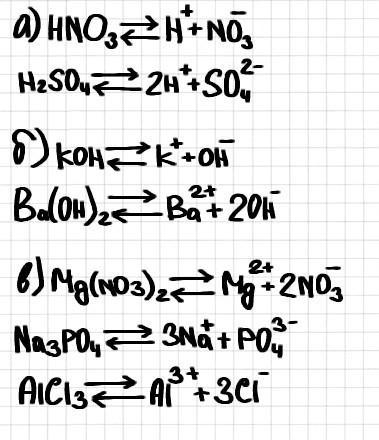 а) HNO₃ ⇄ H⁺ + NO₃⁻
H₂SO₄ ⇄ 2H⁺ + SO₄²⁻
б) KOH ⇄ K⁺ + OH⁻
Ba(OH)₂ ⇄ Ba²⁺ + 2OH⁻
в) Mg(NO₃)₂ ⇄ Mg²⁺ + 2NO₃⁻
Na₃PO₄ ⇄ 3Na⁺ + PO₄³⁻
AlCl₃ ⇄ Al³⁺ + 3Cl⁻